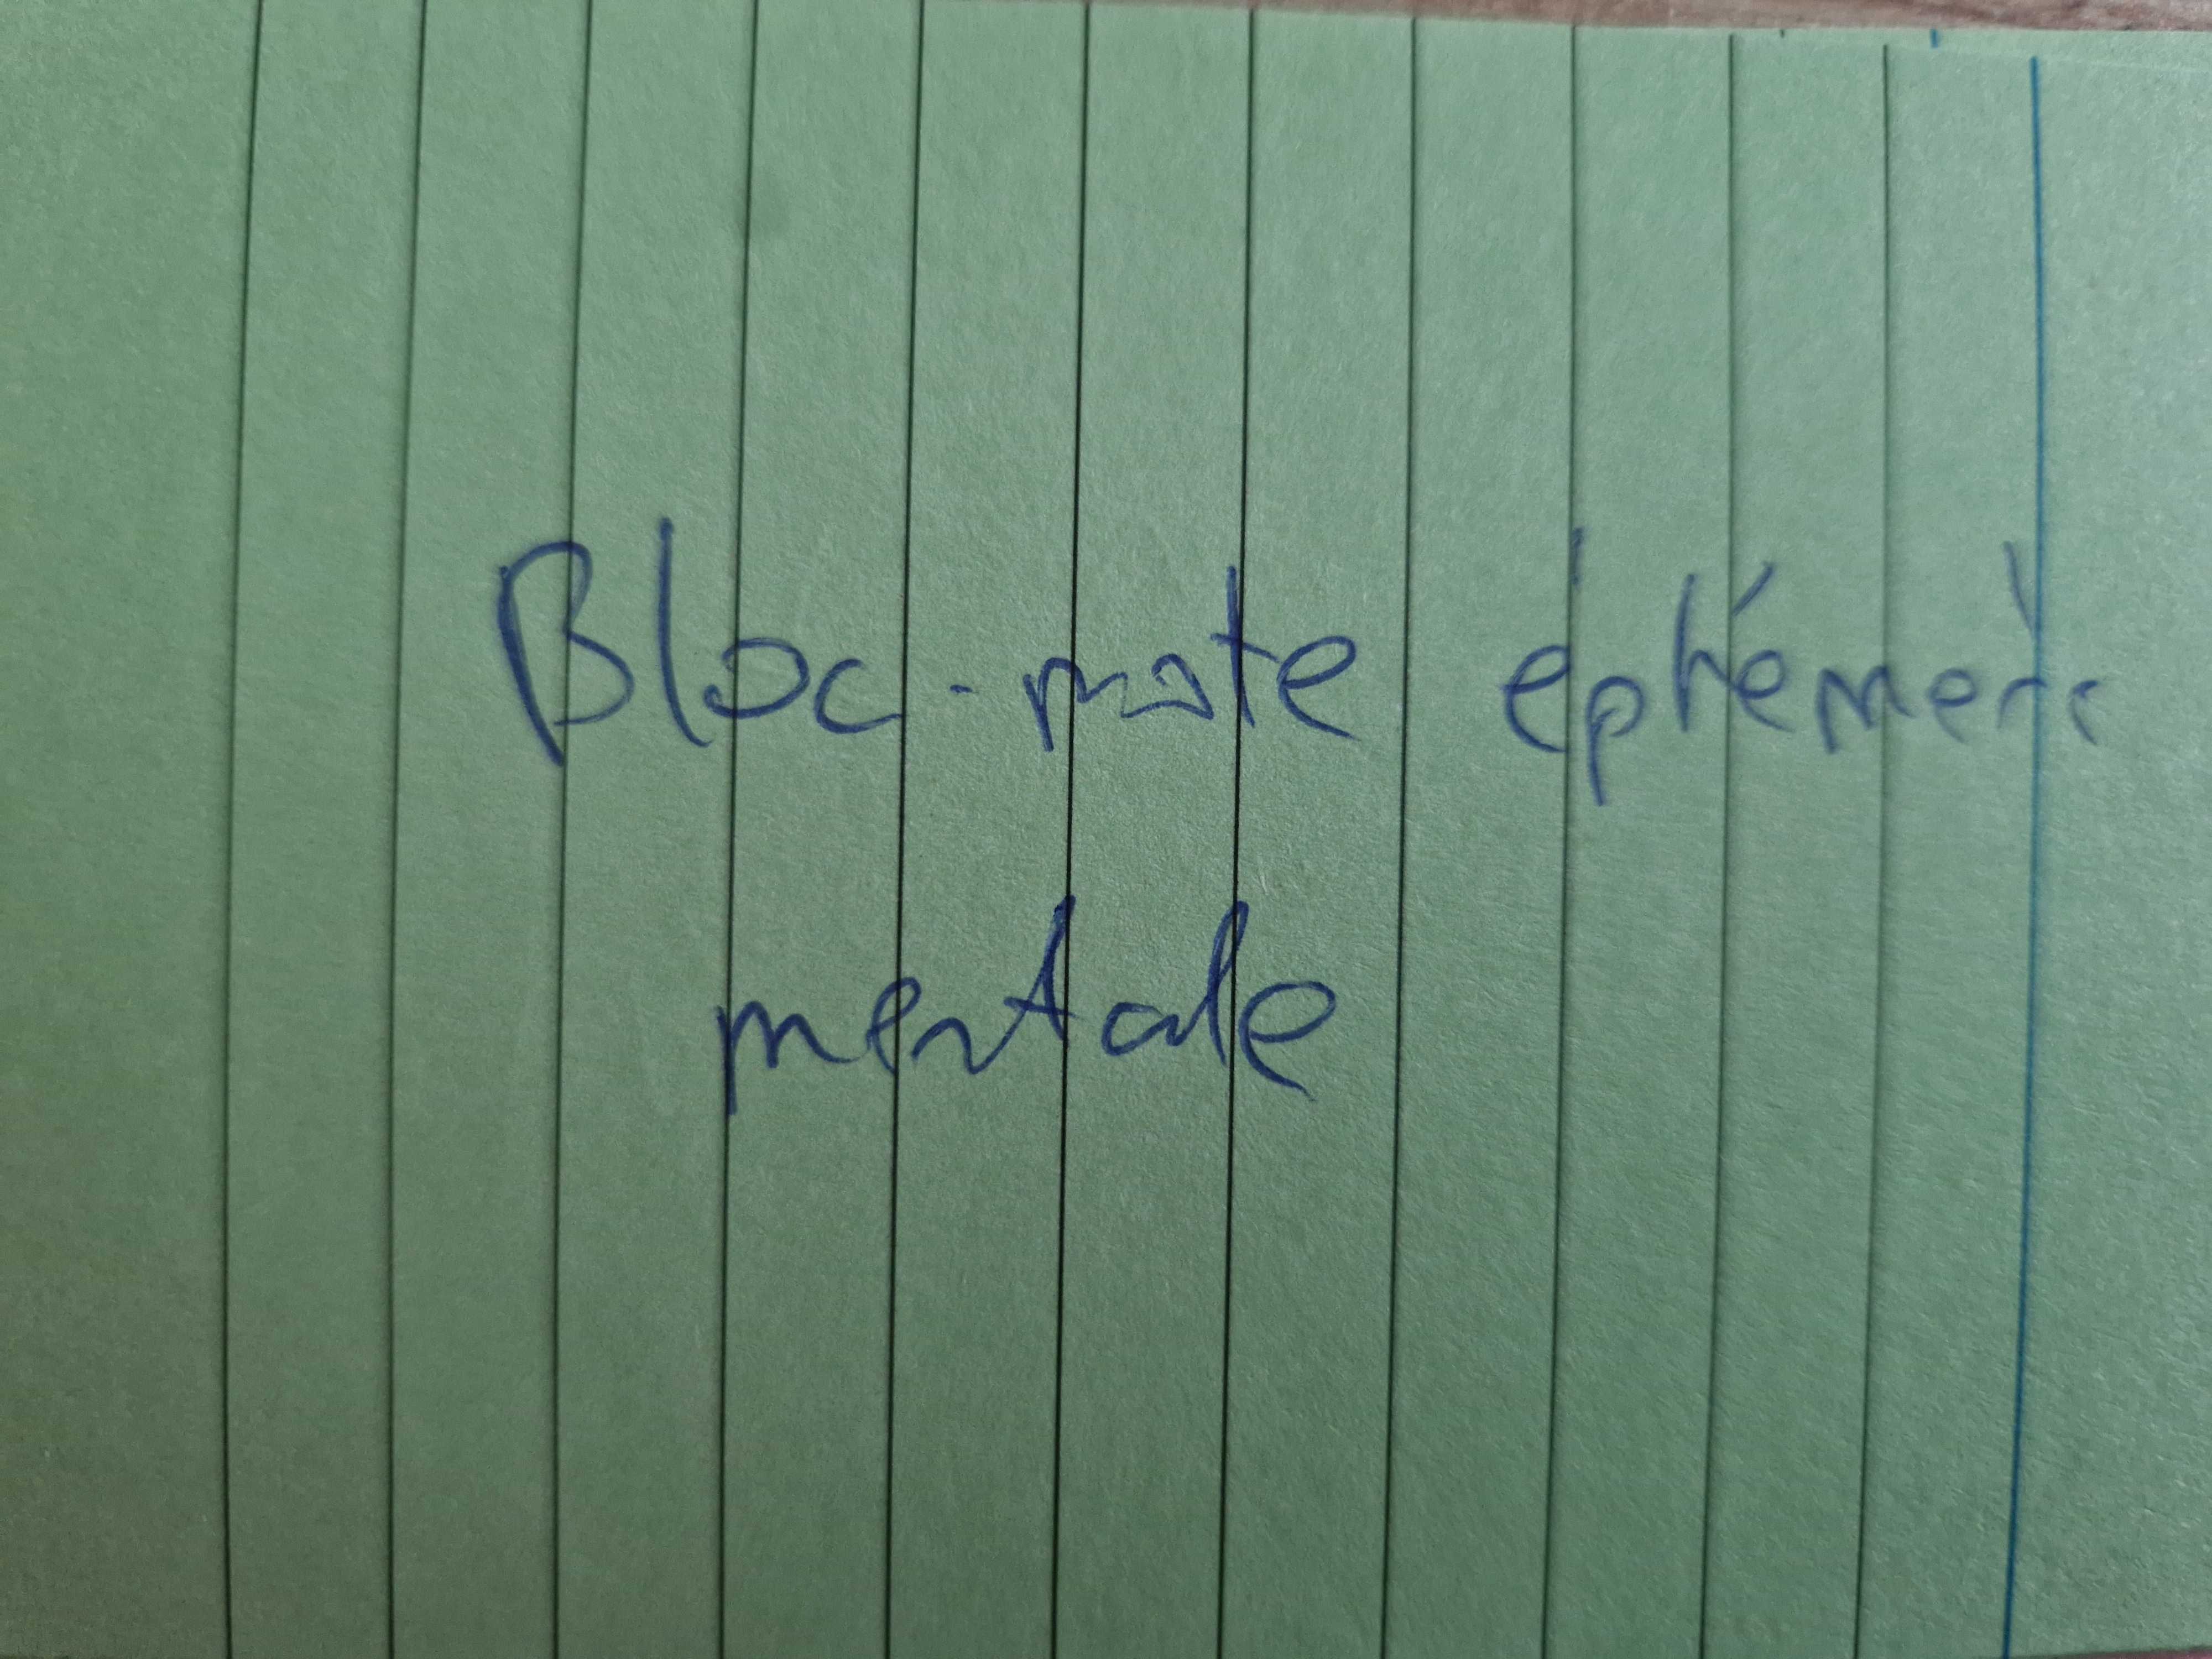 Bloc-note éphémère
mentale